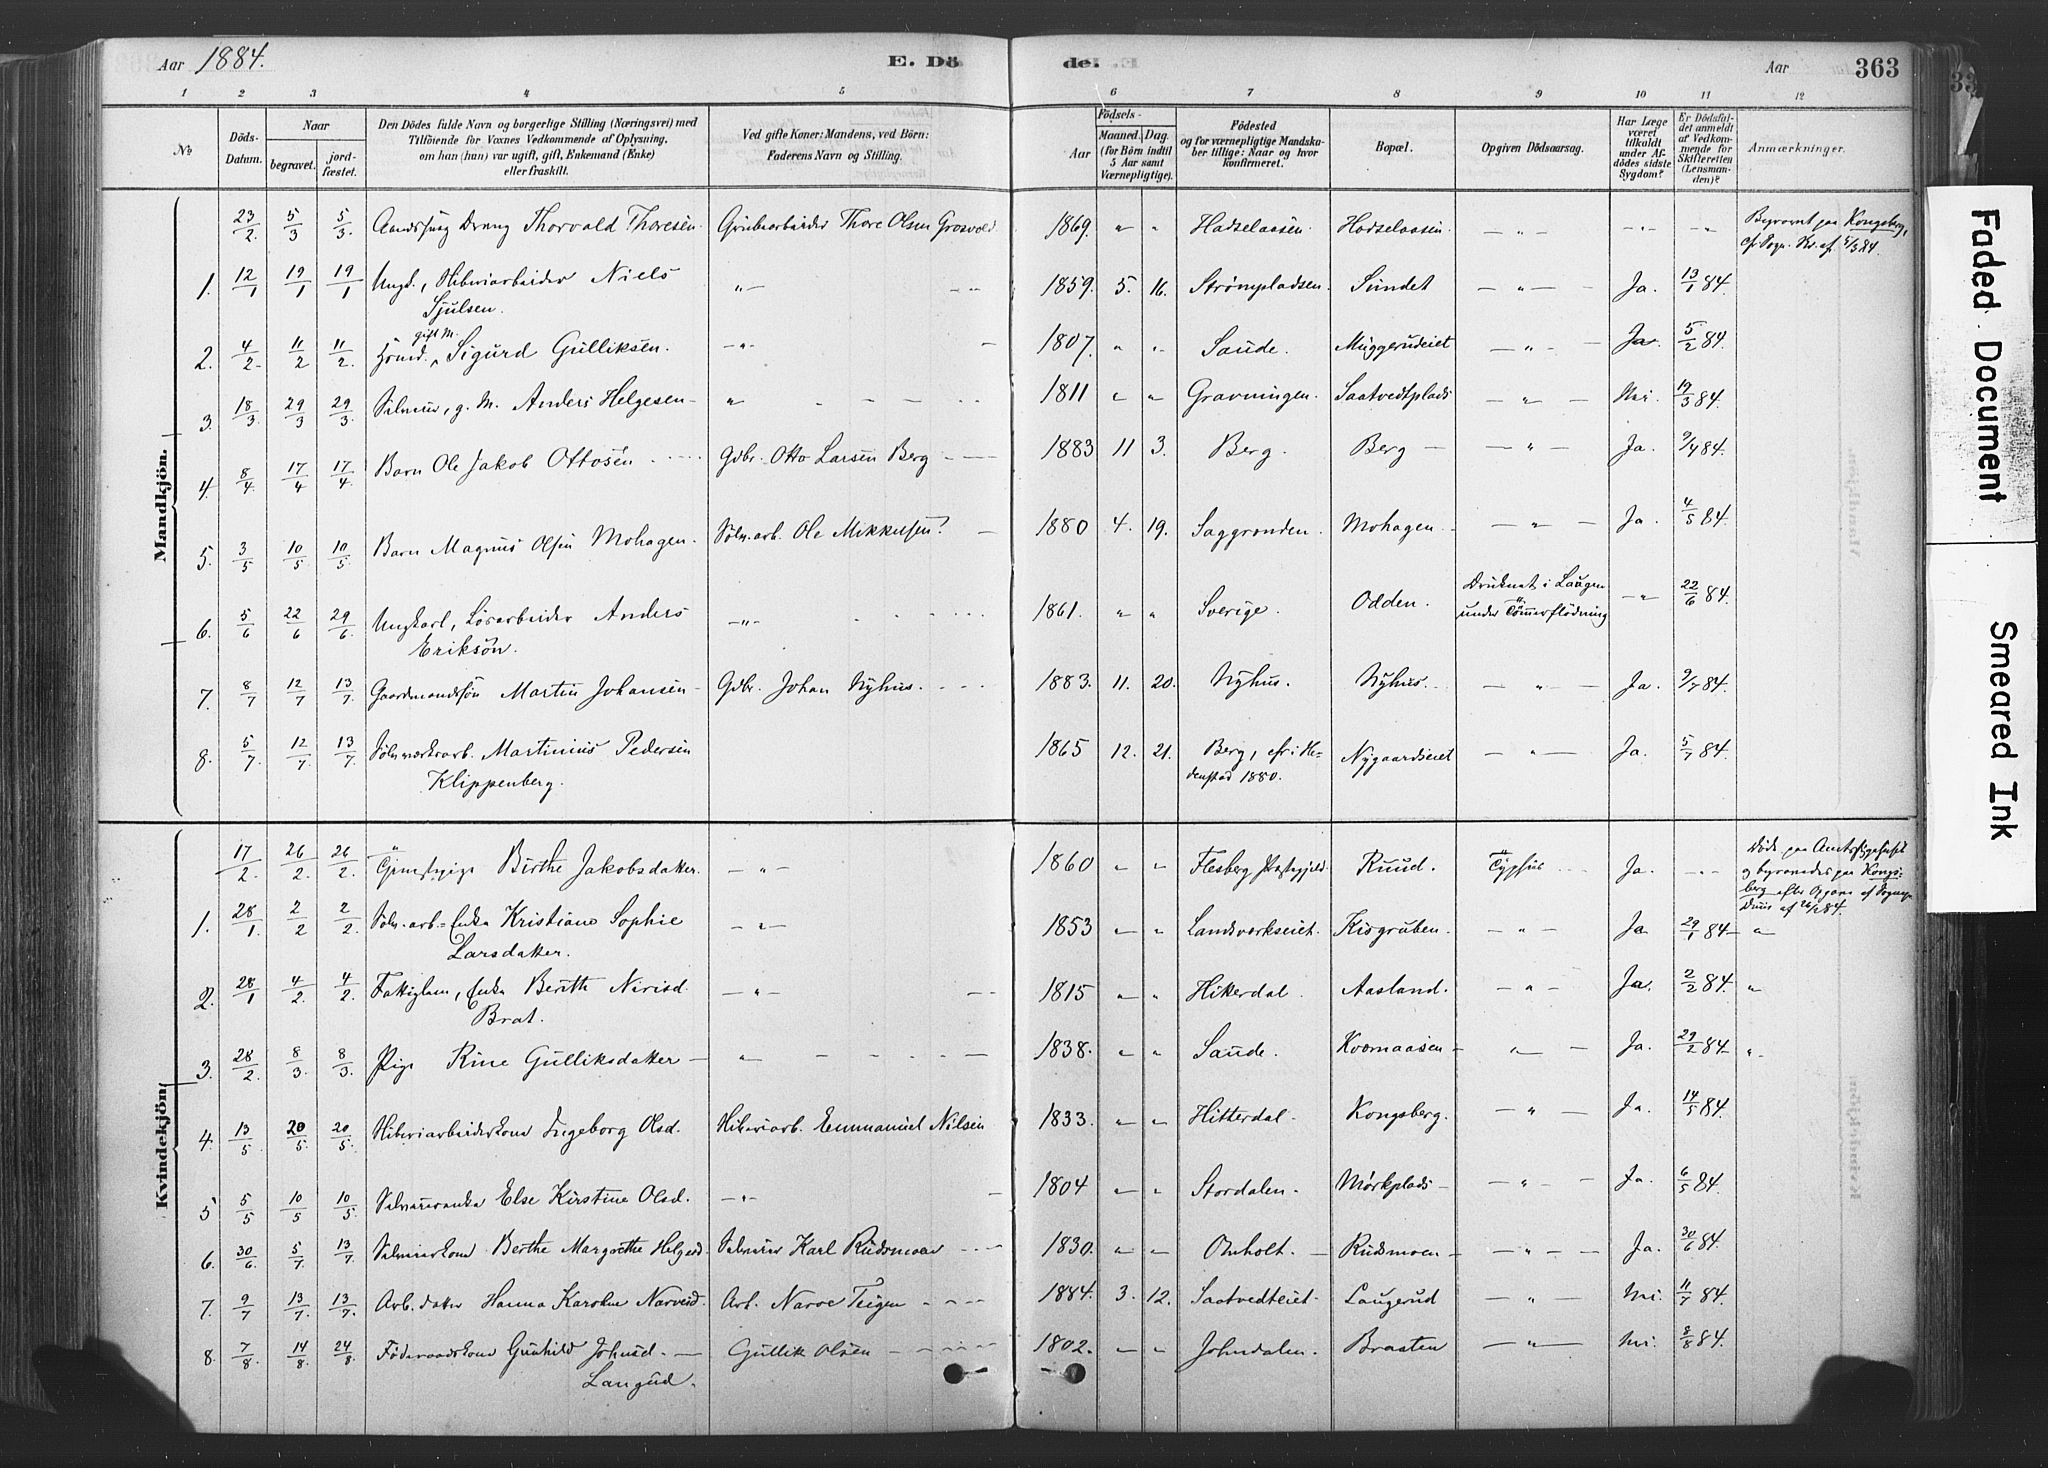 Aar 1884.
E. Dö
de. E.
Aar
363
1 2 3 4 5 6 7 8 9 10 11 12
No
Döds-Datum.
Naar
begravet.
jord-fæstet.
Den Dödes fulde Navn og borgerlige Stilling (Næringsvei) med
Tilföiende for Voxnes Vedkommende af Oplysning,
om han (hun) var ugift, gift, Enkemand (Enke)
eller fraskilt.
Ved gifte Koner: Mandens, ved Börn:
Faderens Navn og Stilling.
Födsels-
Aar
Maaned. Dag.
(for Börn indtil
5 Aar samt
Værnepligtige).
Födested
og for værnepligtige Mandska-
ber tillige: Naar og hvor
konfirmeret.
Bopæl.
Opgiven Dödsaarsag.
Har Læge
været
tilkaldt
under Af-
dödes sidste
Sygdom?
Er Dödsfal-
det anmeldt
af Vedkom-
mende for
Skifteretten
(Lensman-
den)?
Anmærkninger.
Mandkjön.
23/2. 5/3 5/3. Dreng Thorvald Thoresen Grubearbeider Thore Olsen Grosvold 1869. " " Hadselaasen. Hadselaasen - " - - " - - " Begravet paa Kongsberg,
5/3 84.
1. 12/1 19/1 19/1 Ungk., Hiberiarbeider Niels " - - - 1859. 5. 16. Strømpladsen. Sundet - " - Ja. 13/1 84.
Sjulsen.
gift M.
2. 4/2. 11/2 11/2. Sigurd Gulliksen. - " - - 1807. " " Saude. Muggerudeiet - " - Ja. 5/2 84.
3. 18/3. 29/3 29/3. g. M. Anders Helgesen - " - - - - 1811 " " Gravningen. Saatvedtplads - " - Nei. 19/3 84.
4. 8/4. 17/4 17/4 Barn Ole Jakob Ottosen Gdbr. Otto Larsen Berg - - 1883 11 3. Berg. Berg - - " - Ja. 9/4 84.
5. 3/5 10/5 10/5 Barn Magnus Olsen Mohagen. Sølv.arb. Ole Mikkelsen? - 1880 4. 19. Saggrenden. Mohagen. - " - Ja. 4/5 84.
6. 5/6 22/6 29/6. Ungkarl, Løsarbeider Anders - " - - - - 1861. " " Sverige. Odden. Druknet i Laugen - " 22/6 84.
under Tømmerflødning
Eriksön.
7. 8/7 12/7 13/7. Gaardmandssön Martin Johansen - Gdbr. Johan Nyhus. - - 1883. 11. 20. Nyhus. Nyhus. - " - Ja. 9/7 84.
8. 5/7. 12/7 13/7 Sölvverksarb. Martinius Pedersen 1865 12. 21. Berg, cfr i He- Nygaardseiet - " - Ja. 5/7 84.
denstad 1880.
Klippenberg.
Kvindekjön.
17/2. 26/2. 26/2. Tjenestepige Birthe Jakobsdatter. - " - 1860 " " Flesberg Præstegjeld. Ruud. Typhus Ja. - - Døde paa Amtssygehuset
og begravedes paa Kongs-
berg efter Opgave af Sogne-
26/2 84.
1. 28/1. 2/2 2/2. Sølv.arb.=Enke Kristiane Sophie - " - 1853 " " Landsverkseiet. Kisgruben. - " - Ja 29/1 84 - "
Larsdatter.
2. 28/1 4/2. 4/2. Fattiglem, Enke Berith Nirisd. - " - - 1815 " " Hiterdal. Aasland. - " - Ja. 2/2 84. "
Brat.
3. 28/2. 8/3 8/3. Pige Rine Gulliksdatter - " - - - - 1838. " " Saude. Kvernaasen - " - Ja. 29/2 84 - "
4. 13/5 20/5 20/5. Hiberiarbeiderkone Ingeborg Olsd. Hiberiarb. Emmanuel Nilsen 1833. " " Hitterdal. Kongsberg. - " - Ja. 14/5 84.
5 5/5 10/5 10/5. Else Kirstine Olsd. - " - - 1804 " " Stordalen. Mörkplads - - " - Ja. 6/5 84.
6. 30/6 5/7. 13/7 Berthe Margrethe Helgesd. Karl Rudsmoen - - 1830. " " Omholt. - Rudsmoen - - " - Ja. 30/6 84.
7. 9/7 13/7. 13/7. Arb. datter Hanna Karoline Narvesd. Arb. Narve Teigen - - 1884. 3. 12. Saatvedteiet. Laugerud - " - Nei. 11/7 84.
8. 7/8. 14/8. 24/8. Föderaadskone Gunhild Johnsd. - Gullik Olsen - - - 1802. " " Johndalen. Braaten - " - Nei. 8/8 84.
Langud.
Faded Document
Smeared Ink